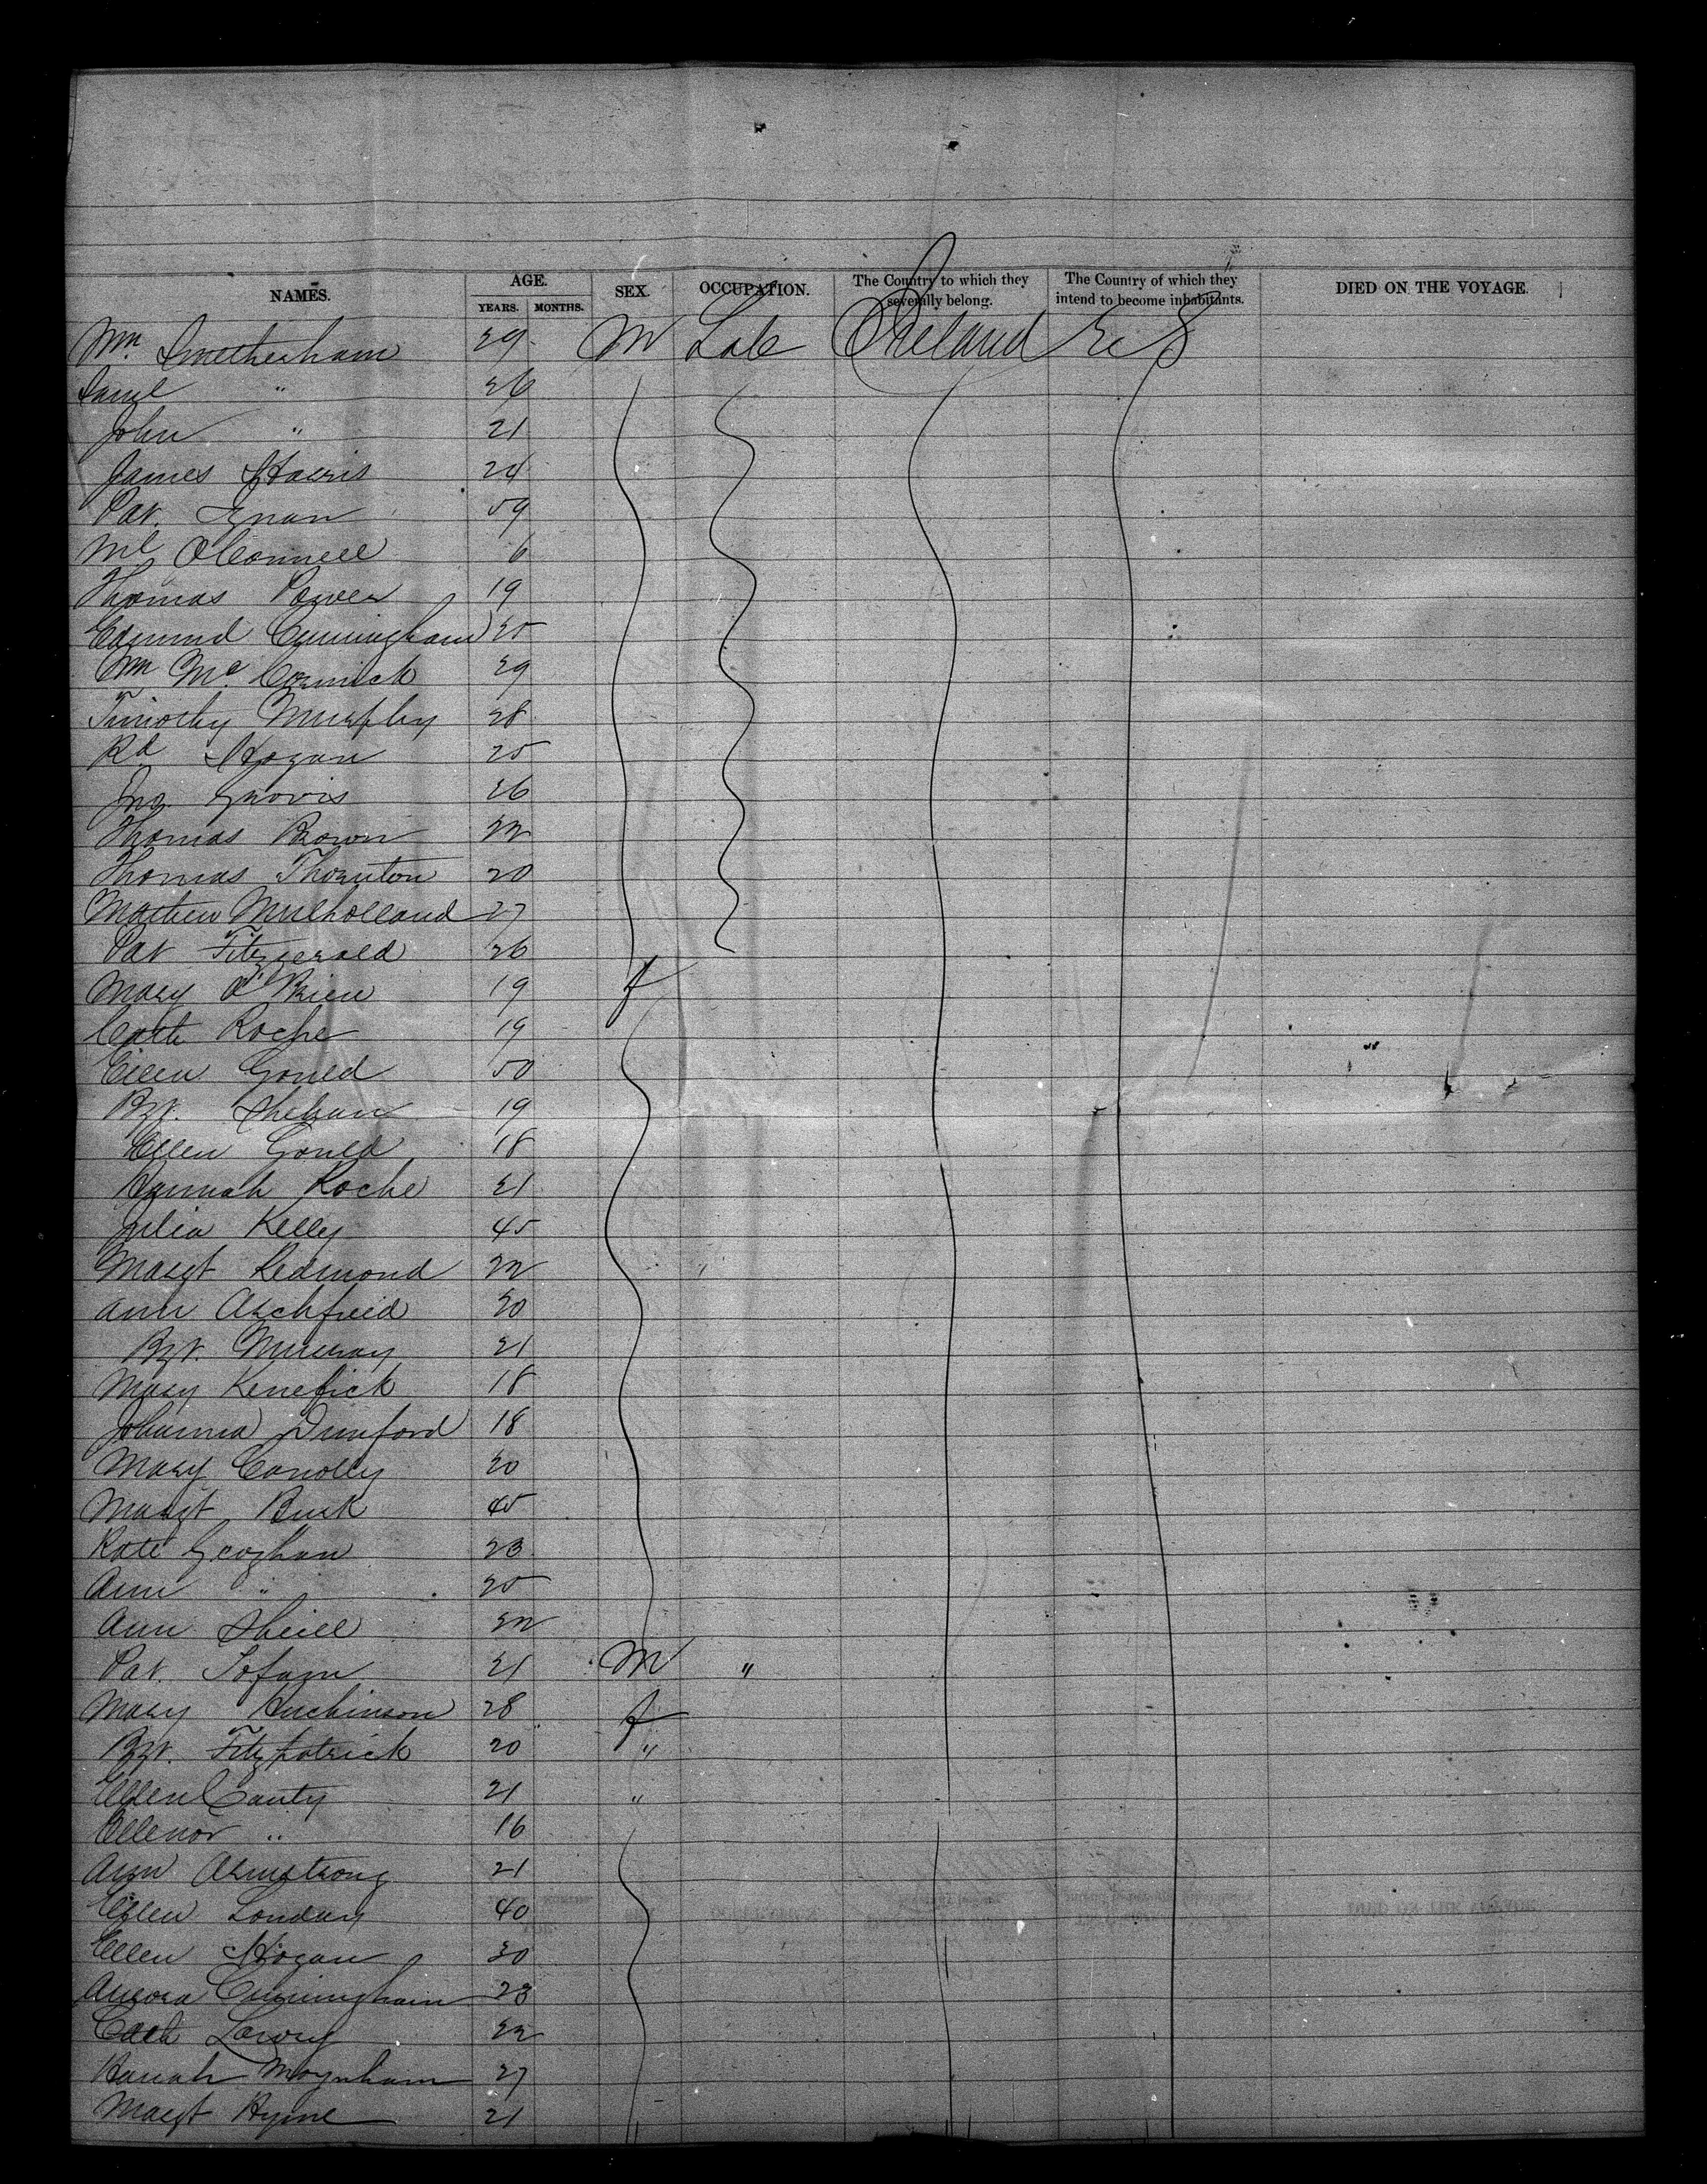 NAMES. AGE. SEX. OCCUPATION. The Country to which they severally belong. The Country of which they intend to become inhabitants. DIED ON THE VOYAGE.
YEARS. MONTHS.
Wm. Smetherham 29 M Lab Ireland U S
Danl " 26
John " 21
James Harris 24
Pat. 59
Ml O'Connell 6
Thomas Power 19
Edmund Cunningham 25
Wm McCormick 29
Timothy Murphy 28
Rd Hogan 25
Jno. 26
Thomas Brown 22
Thomas Thornton 20
Mathew Mulholland 27
Pat Fitzgerald 26
Mary O'Brien 19 f
Cath Roche 19
Ellen Gould 50
Bgt. Shehan 19
Ellen Gould 18
Hannah Roche 21
Julia Kelly 45
Margt Redmond 22
Ann Archfield 20
Bgt. Murray 21
Mary Kenefick 18
Johanna Dunford 18
Mary Conolly 20
Margt Burk 45
Kate Geoghan 23
Ann " 25
Ann Shiell 22
Pat. 21 M "
Mary Huchinson 28 f
Bgt. Fitzpatrick 20 "
Ellen Canty 21 "
Ellenor " 16
Ann Armstrong 21
Ellen 40
Ellen Hogan 30
Aurora Cunningham 23
Cath Lowry 22
Hanah Moynham 27
Margt Hyme 21